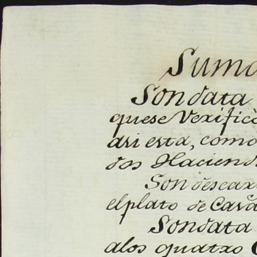 Suma
Son data
quese Verificò
dri esta, como
dos Haciend
Son descar
el plato de Cava
Son data
alos quatro